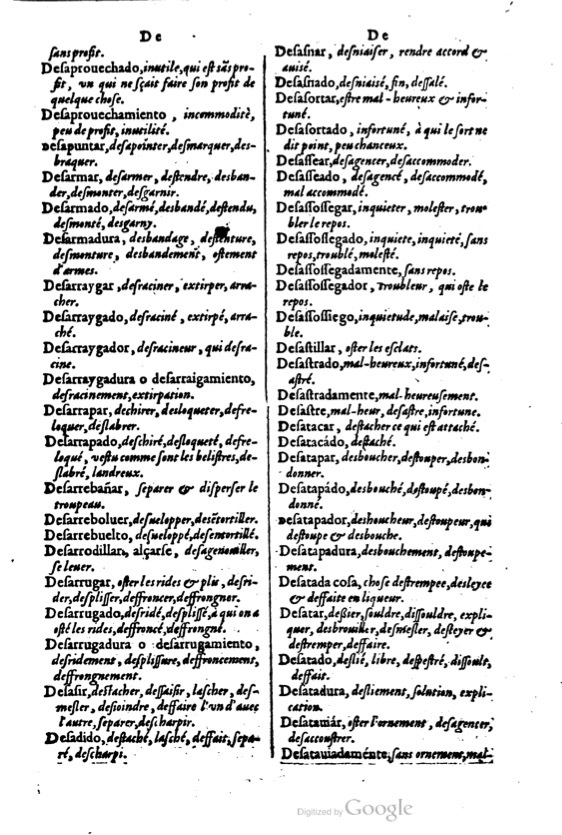 De
sans profit.
Desaprouechado, inutile, qui est sãs pro-
fit, vn qui ne sçait faire son profit de
quelque chose.
Desaprouechamiento, incommodité,
peu de profit, inutilité.
Desapuntar, desapointer, desmarquer, des-
braquer.
Desarmar, desarmer, destendre, desban-
der, desmonter, desgarnir.
Desarmado, desarmé, desbandé, destendu,
desmonté, desgarny.
Desarmadura, desbandage, destenture,
desmonture, desbandement, ostement
d'armes.
Desarraygar, desraciner, extirper, arra-
cher.
Desarraygado, desraciné, extirpé, arra-
ché.
Desarraygador, desracineur, qui desra-
cine.
Desarraygadura o desarraigamiento,
desracinement, extirpation.
Desarrapar, dechirer, desloqueter, defre-
loquer, deslabrer.
Desarrapado, deschiré, desloqueté, defre-
loqué, vestu comme sont les belistres, de-
slabré, landreux.
Desarrebañar, separer & disperser le
troupeau.
Desarreboluer, desuelopper, desẽtortiller.
Desarrebuelto, desueloppé, desentortillé.
Desarrodillar, alçarse, desagenouiller,
se leuer.
Desarrugar, oster les rides & plis, desri-
der, desplisser, deffroncer, deffrongner.
Desarrugado, desridé, desplissé, à qui on a
osté les rides, deffroncé, deffrongné.
Desarrugadura o desarrugamiento,
desridement, desplissure, deffroncement,
deffrongnement.
Desasir, destacher, dessaisir, lascher, des-
mesler, desioindre, deffaire l'vn d'auec
l'autre, separer, descharpir.
Desadido, destaché, lasché, deffait, sepa-
ré, descharpi.
De
Desasnar, desniaiser, rendre accord &
auisé.
Desasnado, desniaisé, fin, dessalé.
Desasortar, estre mal-heureux & infor-
tuné.
Desasortado, infortuné, à qui le sort ne
dit point, peu chanceux.
Desassear, desagencer, desaccommoder.
Desasseado, desagencé, desaccommodé,
mal accommodé.
Desassossegar, inquieter, molester, trou-
bler le repos.
Desassossegado, inquiete, inquieté, sans
repos, troublé, molesté.
Desassossegadamente, sans repos.
Desassossegador, troubleur, qui oste le
repos.
Desassossiego, inquietude, malaise, trou-
ble.
Desastillar, oster les esclats.
Desastrado, mal-heureux, infortuné, des-
astré.
Desastradamente, mal-heureusement.
Desastre, mal-heur, desastre, infortune.
Desatacar, destacher ce qui est attaché.
Desatacádo, destaché.
Desatapar, desboucher, destouper, desbon-
donner.
Desatapádo, desbouché, destoupé, desbon-
donné.
Desatapador, desboucheur, destoupeur, qui
destoupe & desbouche.
Desatapadura, desbouchement, destoupe-
ment.
Desatada cosa, chose destrempee, desleyee
& deffaite en liqueur.
Desatar, deslier, souldre, dissouldre, expli-
quer, desbrouiller, desmesler, desteyer &
destremper, deffaire.
Desatado, deslié, libre, despestré, dissoult,
deffait.
Desatadura, desliement, solution, expli-
cation.
Desatauiár, oster l'ornement, desagencer,
desaccoustrer.
Desatauiadaménte, sans ornement, mal-
Digitized by Google